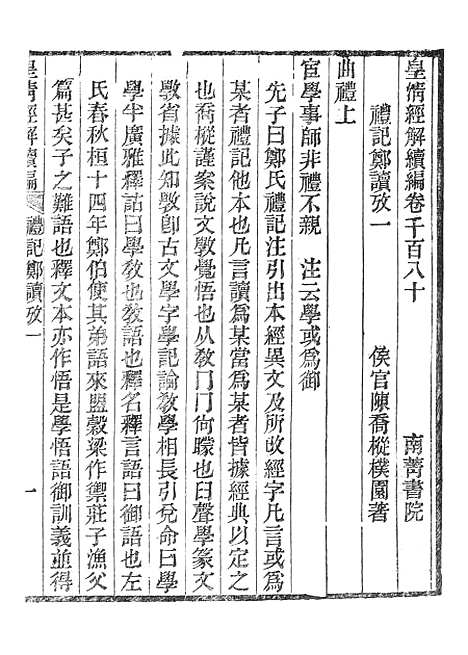 皇淸經解續編卷千百八十　南菁書院
禮記鄭讀攷一　侯官陳喬樅樸園著
曲禮上
宦學事師非禮不親　注云學或爲御
先子曰鄭氏禮記注引出本經異文及所改經字凡言或爲
某者禮記他本也凡言讀爲某當爲某者皆據經典以定之
也喬樅謹案說文斆覺悟也从敎冂冂尙矇也臼聲學篆文
斆省據此知斆卽古文學字學記論敎學相長引兌命曰學
學半廣雅釋詁曰學敎也敎語也釋名釋言語曰御語也左
氏春秋桓十四年鄭伯使其弟語來盟穀梁作禦莊子漁父
篇甚矣子之難語也釋文本亦作悟是學悟語御訓義並得
皇淸經解續編　禮記鄭讀攷一　一